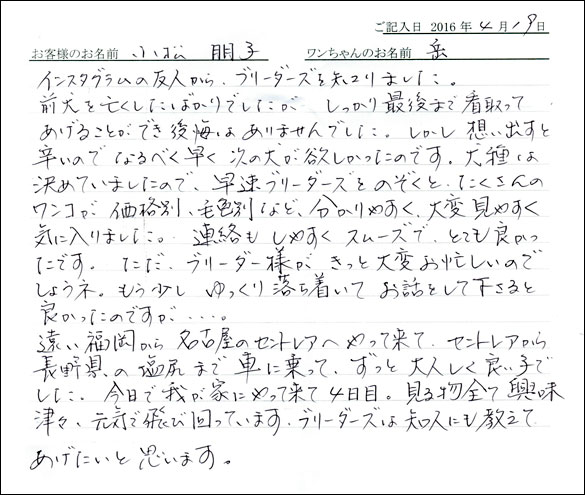 ご記入日 2016年4月19日
お客様のお名前 小松 朋子 ワンちゃんのお名前 岳
インスタグラムの友人から、ブリーダーズを知りました。
前犬を亡くしたばかりでしたが、しっかり最後まで看取って
あげることができ後悔はありませんでした。しかし想い出すと
辛いので なるべく早く 次の犬が欲しかったのです。犬種は
決めていましたので、早速ブリーダーズをのぞくと、たくさんの
ワンコが 価格別、毛色別など、分かりやすく、大変見やすく
気に入りました。 連絡も しやすく スムーズで、とても良かっ
たです。 ただ、ブリーダー様が、きっと大変お忙しいので
しょうネ。もう少し ゆっくり落ち着いて お話をして下さると
良かったのですが・・・・。
遠い福岡から 名古屋のセントレアへやって来て、セントレアから
長野県、の塩尻まで 車に乗って、ずっと大人しく良い子で
した。今日で我が家にやって来て4日目。見る物全て興味
津々、元気で飛び回っています。ブリーダーズは知人にも教えて
あげたいと思います。